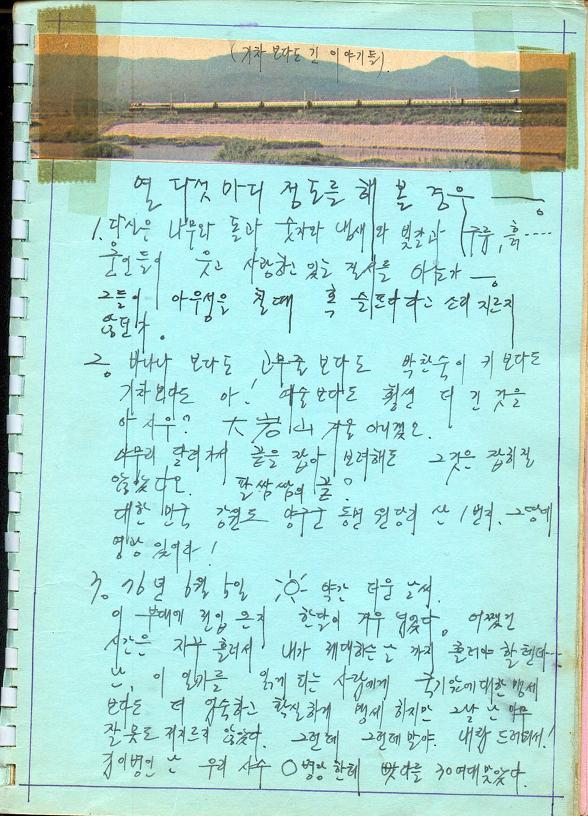 (기차 보다도 긴 이야기들).
열 다섯 마디 정도를 해 볼 경우 ——.
1. 당신은 나무와 돌과 숫자와 냄새와 빛깔과 (주름, 흙.....
웃고 사랑하고 있는 질서를 아는가 —.
그들이 아우성을 칠때 혹 슬프다하고 소리 지르지
않던가.
2. 바나나 보다도 고무줄 보다도 박찬숙이 키 보다도
기차보다도 아! 예술보다도 훨씬 더 긴 것을
아시우? 大岩山 겨울 아니겠오.
아무리 달려가서 끝을 잡아 보려해도 그것은 잡히질
않았다오. 팔쌍쌍의 끝?
대한민국 강원도 양구군 동면 원당리 산 1번지. 그땅에
영광 있어라!
3. 76년 6월 5일 약간 더운 날씨.
이 부대에 전입 온지 한달이 겨우 넘었다. 어쨌건
시간은 자꾸 흘러서 내가 제대하는 날 까지 흘러야 할텐데...
난, 이 일기를 읽게 되는 사람에게 국기앞에 대한 맹세
보다도 더 엄숙하고 확실하게 맹세 하지만 그날 난 아무
잘못도 저지르지 않았다. 그런데 그런데 말야. 내참 드러워서!
김이병인 난 우리 사수 ○병장한테 빳다를 30여대 맞았다.